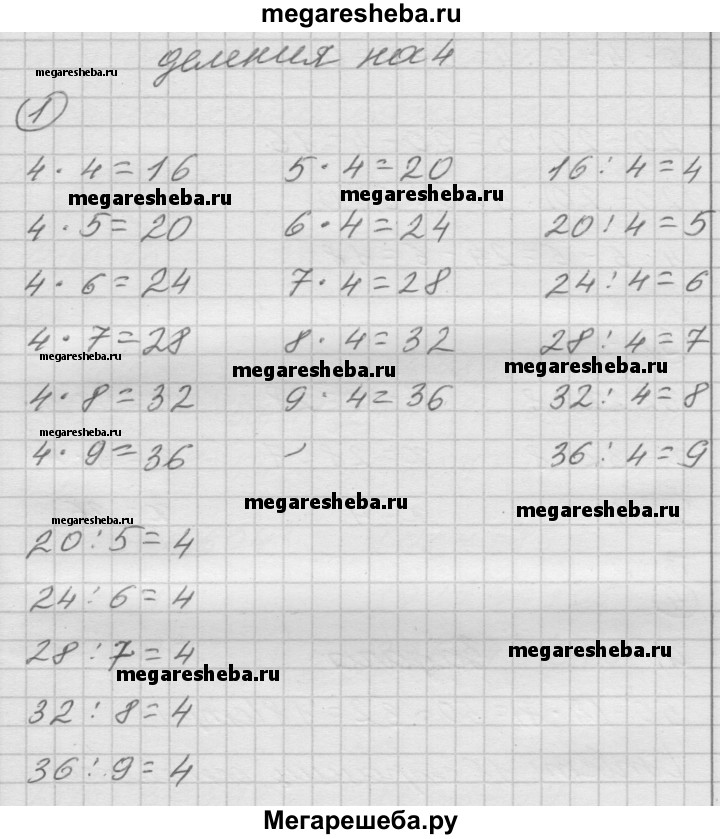 megaresheba.ru
деления на 4
megaresheba.ru
1
4 · 4 = 16 5 · 4 = 20 16 : 4 = 4
megaresheba.ru megaresheba.ru
4 · 5 = 20 6 · 4 = 24 20 : 4 = 5
4 · 6 = 24 7 · 4 = 28 24 : 4 = 6
4 · 7 = 28 8 · 4 = 32 28 : 4 = 7
megaresheba.ru megaresheba.ru megaresheba.ru
4 · 8 = 32 9 · 4 = 36 32 : 4 = 8
megaresheba.ru
4 · 9 = 36 36 : 4 = 9
megaresheba.ru megaresheba.ru
megaresheba.ru
20 : 5 = 4
24 : 6 = 4
28 : 7 = 4
megaresheba.ru megaresheba.ru
32 : 8 = 4
36 : 9 = 4
Мегарешеба.ру